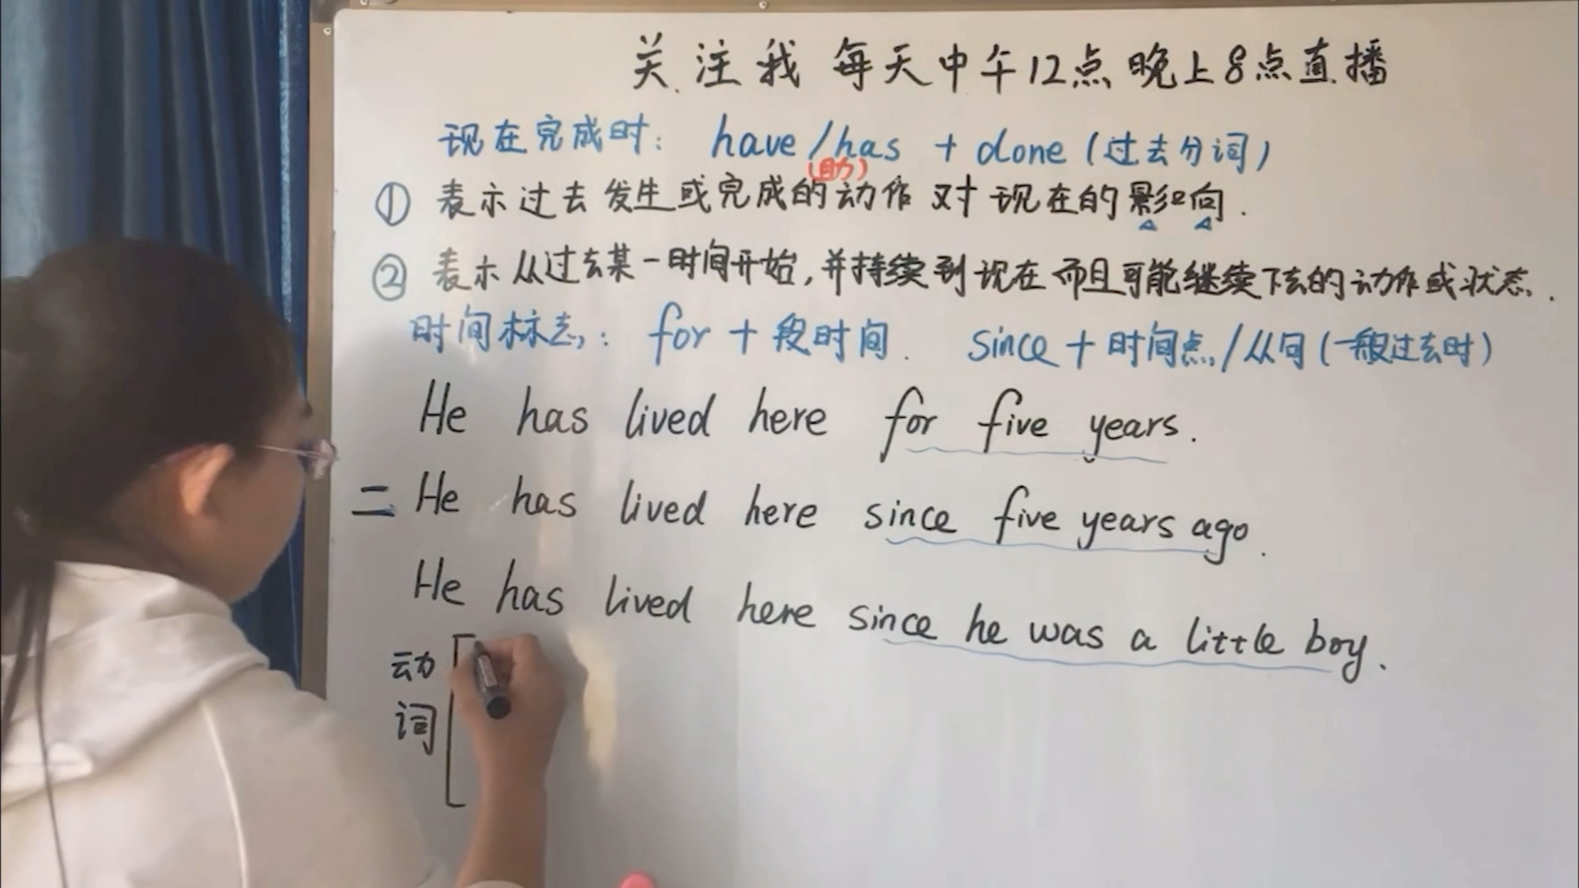 关注我 每天中午12点晚上8点直播
现在完成时: have/has + done (过去分词)
(助)
① 表示过去发生或完成的动作对现在的影响.
② 表示从过去某一时间开始,并持续到现在而且可能继续下去的动作或状态.
时间标志: for + 段时间. since + 时间点/从句(一般过去时)
He has lived here for five years.
= He has lived here since five years ago.
He has lived here since he was a little boy.
动词